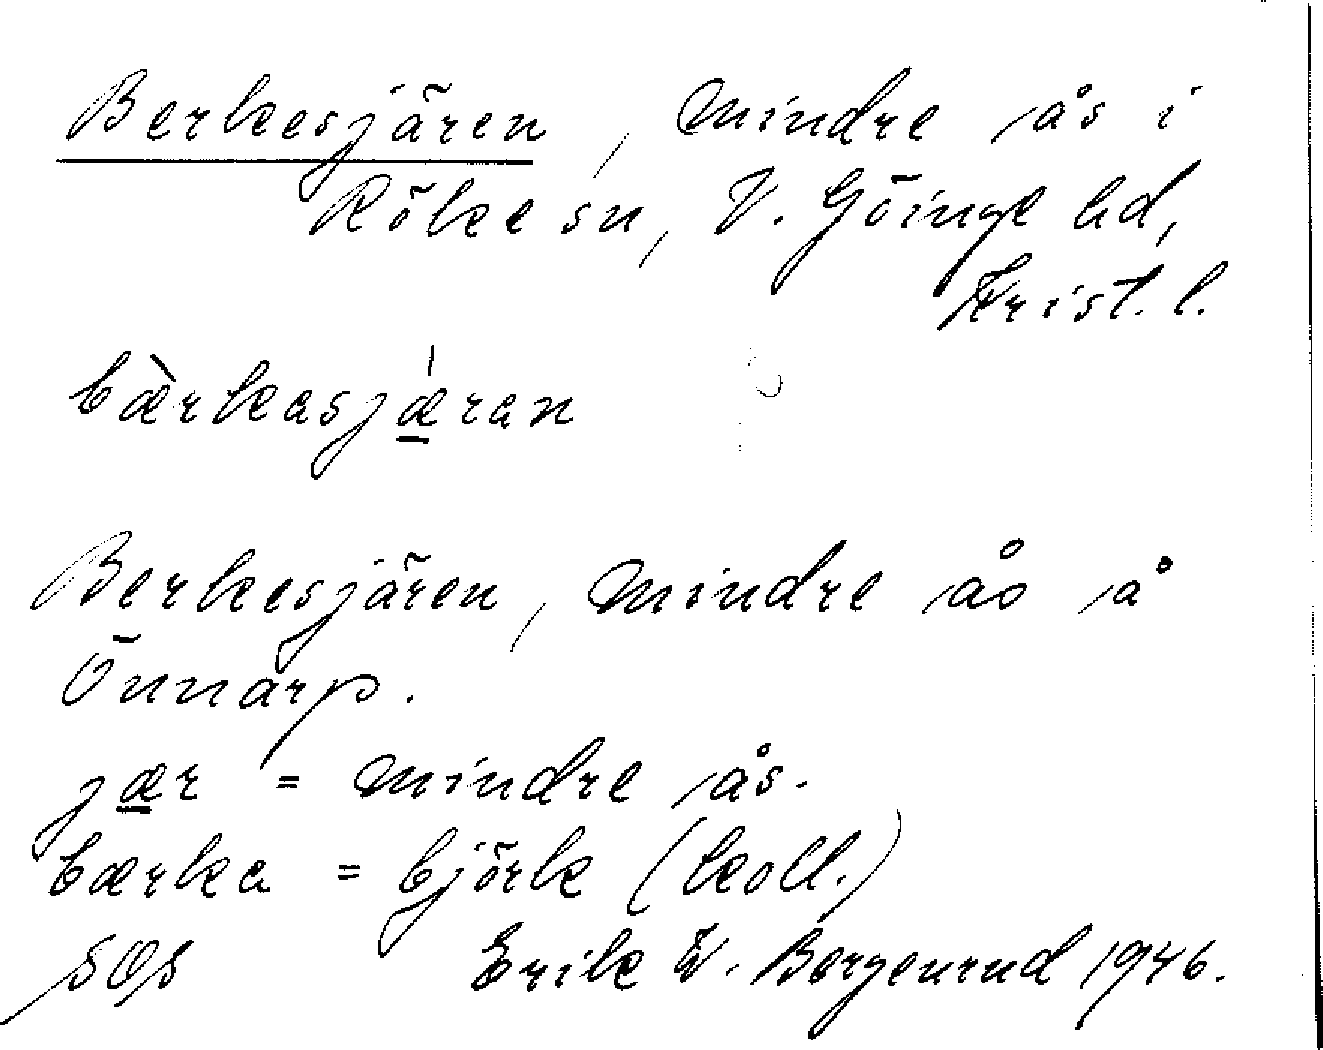 Berkesjären, mindre ås i
Röke sn, V. Göinge hd,
Krist. l.
bæ̀rkasjǽ̲ran
Berkesjären, mindre ås å
Önnarp.
jæ̲r = mindre ås.
bærka = björk (koll.)
SOS Erik W. Bergenrud 1946.